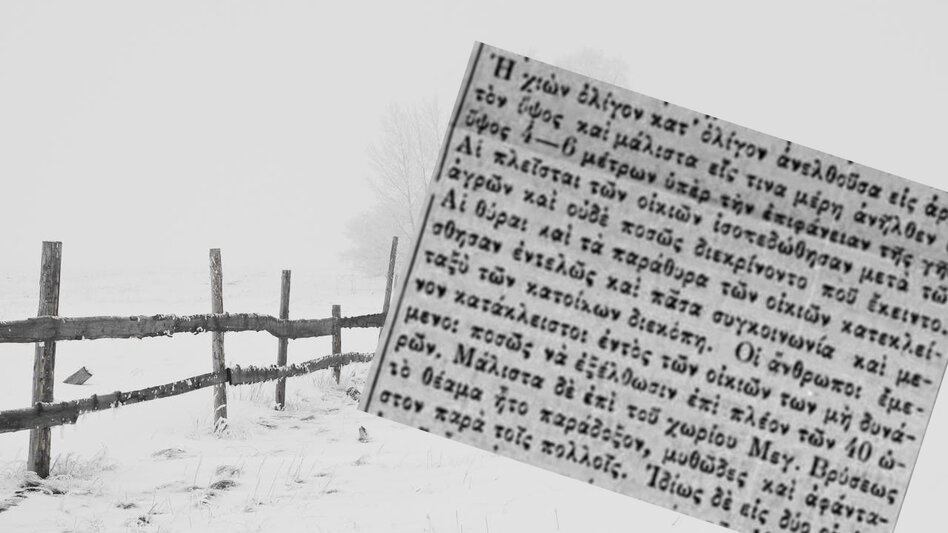 Ἡ χιὼν ὀλίγον κατ' ὀλίγον ἀνελθοῦσα εἰς ἀρ
τὸν ὕψος καὶ μάλιστα εἴς τινα μέρη ἀνῆλθεν
ὕψος 4—6 μέτρων ὑπὲρ τὴν ἐπιφάνειαν τῆς γῆ
Αἱ πλεῖσται τῶν οἰκιῶν ἰσοπεδώθησαν μετὰ τῶ
ἀγρῶν καὶ οὐδὲ ποσῶς διεκρίνοντο ποῦ ἔκειντο
Αἱ θύραι καὶ τὰ παράθυρα τῶν οἰκιῶν κατεκλεί-
σθησαν ἐντελῶς καὶ πᾶσα συγκοινωνία καὶ με-
ταξὺ τῶν κατοίκων διεκόπη. Οἱ ἄνθρωποι ἔμε-
νον κατάκλειστοι ἐντὸς τῶν οἰκιῶν των μὴ δυνά-
μενοι ποσῶς νὰ ἐξέλθωσιν ἐπὶ πλέον τῶν 40 ὡ-
ρῶν. Μάλιστα δὲ ἐπὶ τοῦ χωρίου Μεγ. Βρύσεως
τὸ θέαμα ἦτο παράδοξον, μυθῶδες καὶ ἀφάντα-
στον παρὰ τοῖς πολλοῖς. Ἰδίως δὲ εἰς δύο